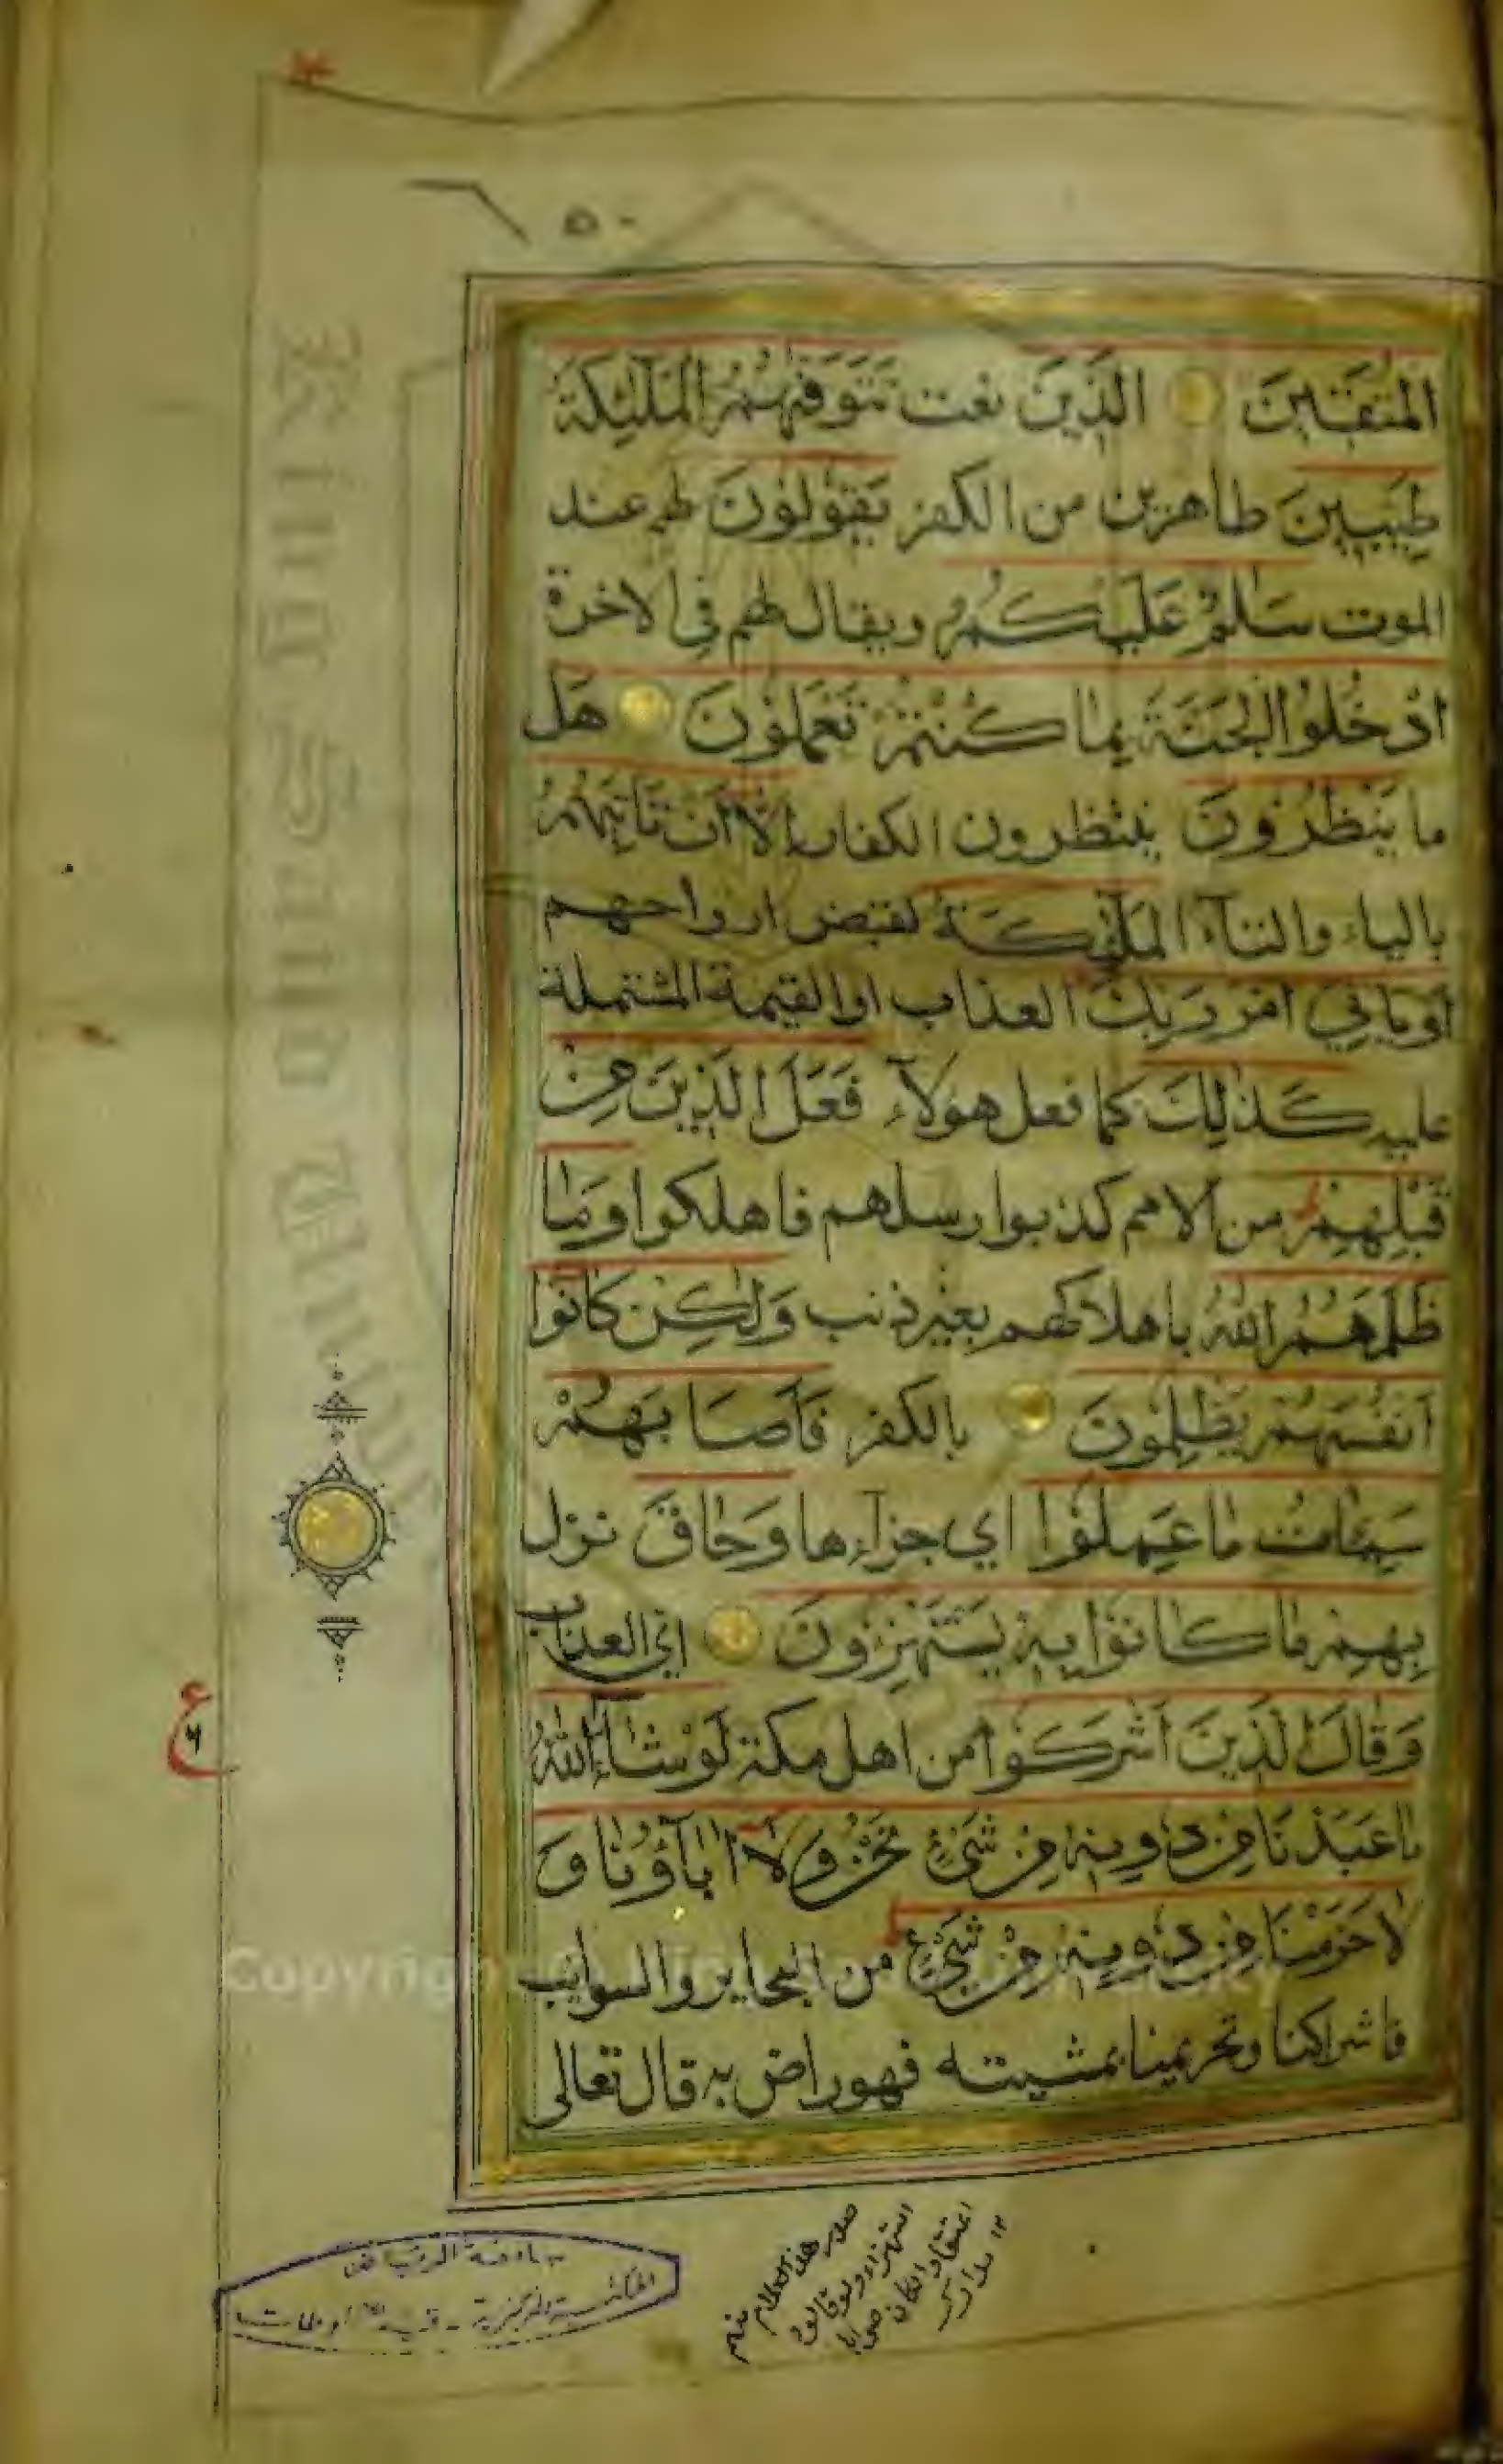 ٥٠
المتقين الذين نعت تتوفهم الملئكة
طيبين طاهرين من الكفر يقولون لهم عند
الموت سلم عليكم ويقال لهم في الاخرة
ادخلوا الجنة بما كنتم تعملون هل
ما ينظرون ينتظرون الكفار الا ان تاتيهم
بالياء والتاء الملئكة لقبض ارواحهم
او ياتي امر ربك العذاب او القيمة المشتملة
عليه كذلك كما فعل هولآء فعل الذين من
قبلهم من الامم كذبوا رسلهم فاهلكوا وما
ظلمهم الله باهلاكهم بغير ذنب ولكن كانوا
انفسهم يظلمون بالكفر فاصابهم
سيئات ما عملوا اي جزاءها وحاق نزل
بهم ما كانوا به يستهزون اي العذاب
وقال الذين اشركوا من اهل مكة لو شاء الله
ما عبدنا من دونه من شئ نحن ولا اباؤنا و
لا حرمنا من دونه من شيء من البحاير والسوايب
فاشراكنا وتحريمنا بمشيته فهو راض به قال تعالى
ع
٦
هذا الكلام منهم
استهزاء ولو قالوه
اعتقادا لكان صوابا
١٢ مدارك
جامعة الرياض
King Saud University
Copyright © King Saud University